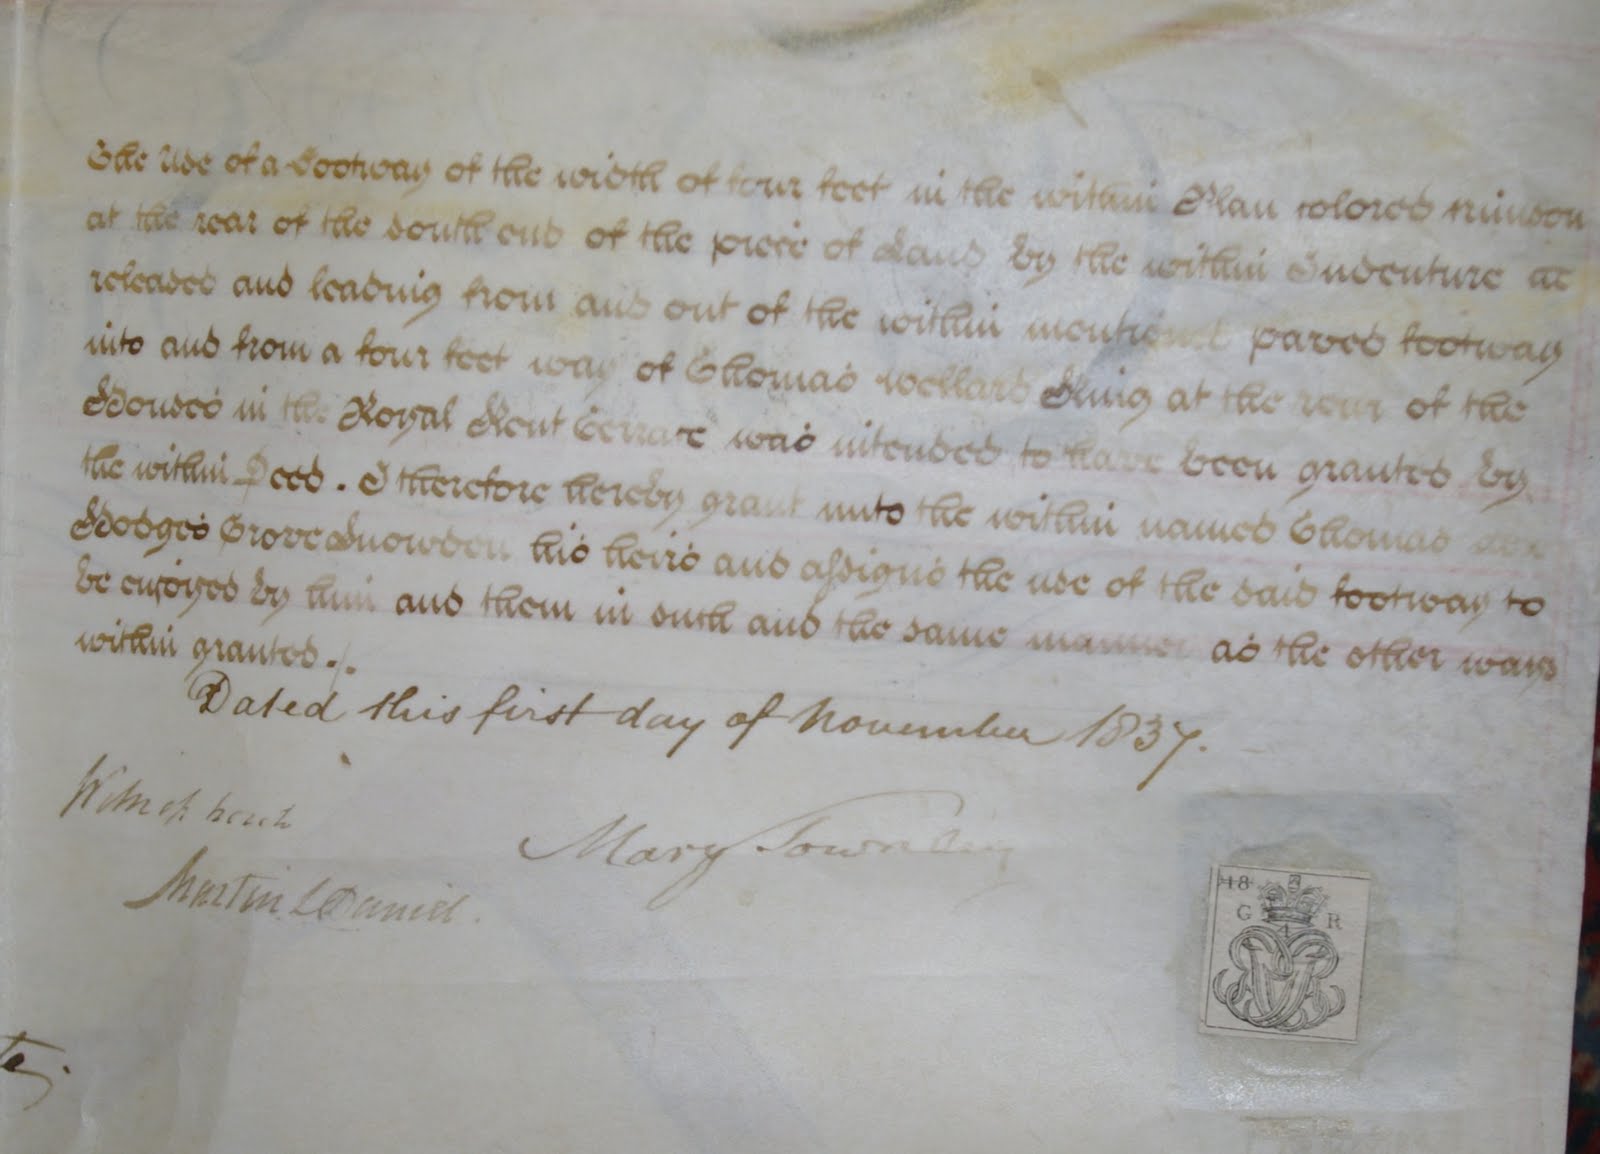 The Use of a Footway of the width of four feet in the within Plan colored crimson
at the rear of the south end of the piece of Land by the within Indenture
released and leading from and out of the within mentioned paved footway
into and from a four feet way of Thomas Wellard King at the rear of the
Houses in the Royal Kent Terrace was intended to have been granted by
the within Deed. I therefore hereby grant unto the within named Thomas
Hodges Grove Snowden his heirs and assigns the use of the said footway to
be enjoyed by him and them in such and the same manner as the other ways
within granted ./.
Dated this first day of November 1837.
Witness
Mary Townley
Martin L Daniel.
18
G R
4